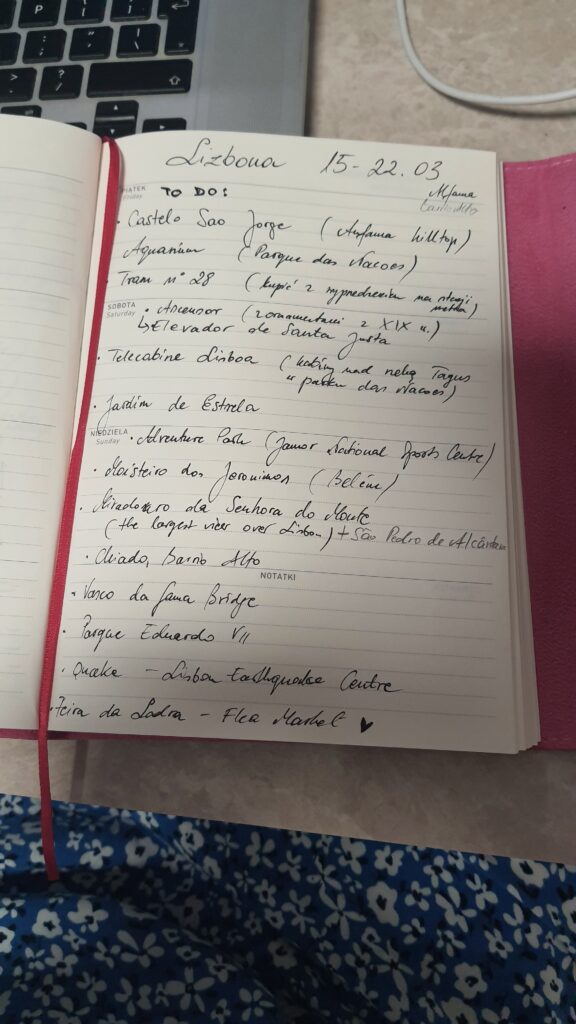 Lizbona 15-22.03
PIĄTEK
Friday
TO DO:
Alfama
• Castelo Sao Jorge (Alfama hilltop)
Aquarium (Parque das Nacoes)
• Tram nº 28 (kupić z wyprzedzeniem na stacji
metra)
SOBOTA
Saturday
• Ascensor (z ornamentami z XIX w.)
↳ Elevador de Santa Justa
• Telecabine Lisboa (kolejką nad rzeką Tagus
w parku das Nacoes)
• Jardim de Estrela
NIEDZIELA
Sunday
• Adventure Park (Jamor National Sports Centre)
• Mosteiro dos Jeronimos (Belém)
• Miradouro da Senhora do Monte
(the largest view over Lisbon) + São Pedro de Alcântara
• Chiado, Bairro Alto
NOTATKI
• Vasco da Gama Bridge
• Parque Eduardo VII
• Quake - Lisbon Earthquake Centre
• Feira da Ladra - Flea Market ♥